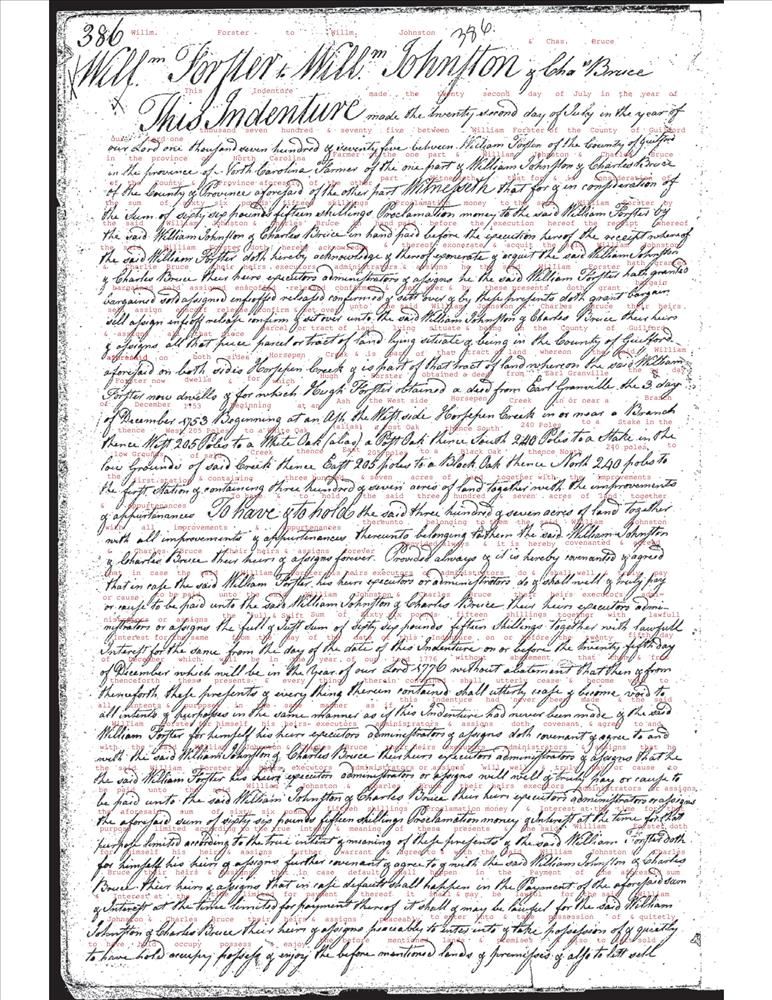 386
386
Willm. Forster to Willm. Johnston & Chas. Bruce
This Indenture made the twenty second day of July in the year of
our Lord one thousand seven hundred & seventy five between William Forster of the County of Guilford
in the province of North Carolina Farmer of the one part & William Johnston & Charles Bruce
of the County & Province aforesaid of the other part Witnesseth that for & in consideration of
the Sum of sixty six pounds fifteen shillings Proclamation money to the said William Forster by
the said William Johnston & Charles Bruce in hand paid before the execution hereof the receipt whereof
the said William Forster doth hereby acknowledge & thereof exonerate & acquit the said William Johnston
& Charles Bruce their heirs executors administrators & assigns he the said William Forster hath granted
bargained sold assigned enfeoffed released confirmed & sett over & by these presents doth grant bargain
sell assign enfeoff release confirm & set over unto the said William Johnston & Charles Bruce their heirs
& assigns all that piece parcel or tract of land lying situate & being in the County of Guilford
aforesaid on both sides Horsepen Creek & is part of that tract of land whereon the said William
Forster now dwells & for which Hugh Forster obtained a deed from Earl Granville the 3 day
of December 1753 Beginning at an Ash the West side Horsepen Creek in or near a Branch
thence West 205 Poles to a White Oak (alias) a Post Oak thence South 240 Poles to a Stake in the
low Grounds of said Creek thence East 205 poles to a Black Oak thence North 240 poles to
the first station & containing three hundred & seven acres of land together with the improvements
& appurtenances To have & to hold the said three hundred & seven acres of land together
with all improvements & appurtenances thereunto belonging to them the said William Johnston
& Charles Bruce their heirs & assigns forever. Provided always & it is hereby covenanted & agreed
that in case the said William Forster, his heirs executors or administrators do & shall well & truly pay
or cause to be paid unto the said William Johnston & Charles Bruce their heirs executors admi-
nistrators or assigns the full & Just Sum of Sixty six pounds fifteen Shillings together with lawfull
Interest for the same from the day of the date of this Indenture on or before the twenty fifth day
of December which will be in the year of our Lord 1776 without abatement that then & from
thenceforth these presents & every thing therein contained shall utterly cease & become void to
all intents & purposes in the same manner as if this Indenture had never been made & the said
William Forster for himself his heirs executors administrators & assigns doth covenant & agree to and
with the said William Johnston & Charles Bruce their heirs executors administrators & assigns that he
the said William Forster his heirs executors administrators or assigns will well & truly pay or cause to
be paid unto the said William Johnston & Charles Bruce their heirs executors administrators or assigns
the aforesaid sum of sixty six pounds fifteen shillings Proclamation money & Interest at the time for that
purpose limited according to the true intent & meaning of these presents & the said William Forster doth
for himself his heirs & assigns further covenant & agree to & with the said William Johnston & Charles
Bruce their heirs & assigns that in case default shall happen in the Payment of the aforesaid sum
& Interest at the time limited for payment thereof it shall & may be lawful for the said William
Johnston & Charles Bruce their heirs & assigns peaceably to enter into & take possession of & quietly
to have hold occupy possess & enjoy the before mentioned lands & premisses & also to lett sell